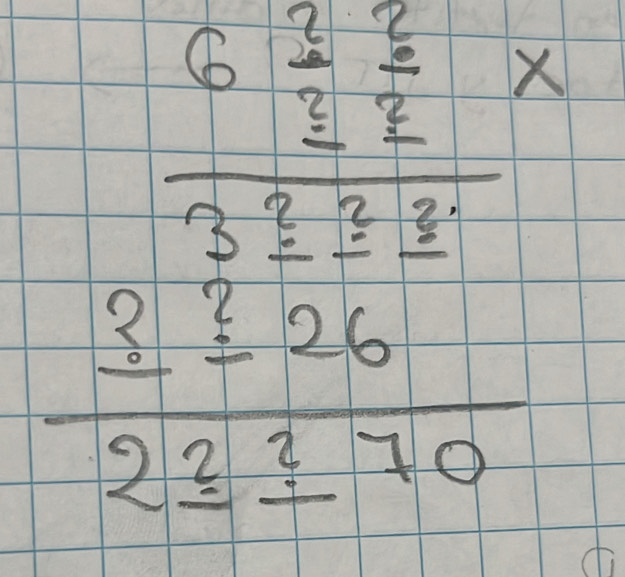 6 ? ? X
? ?
3 ? ? ?
? ? 26
2 ? ? 70